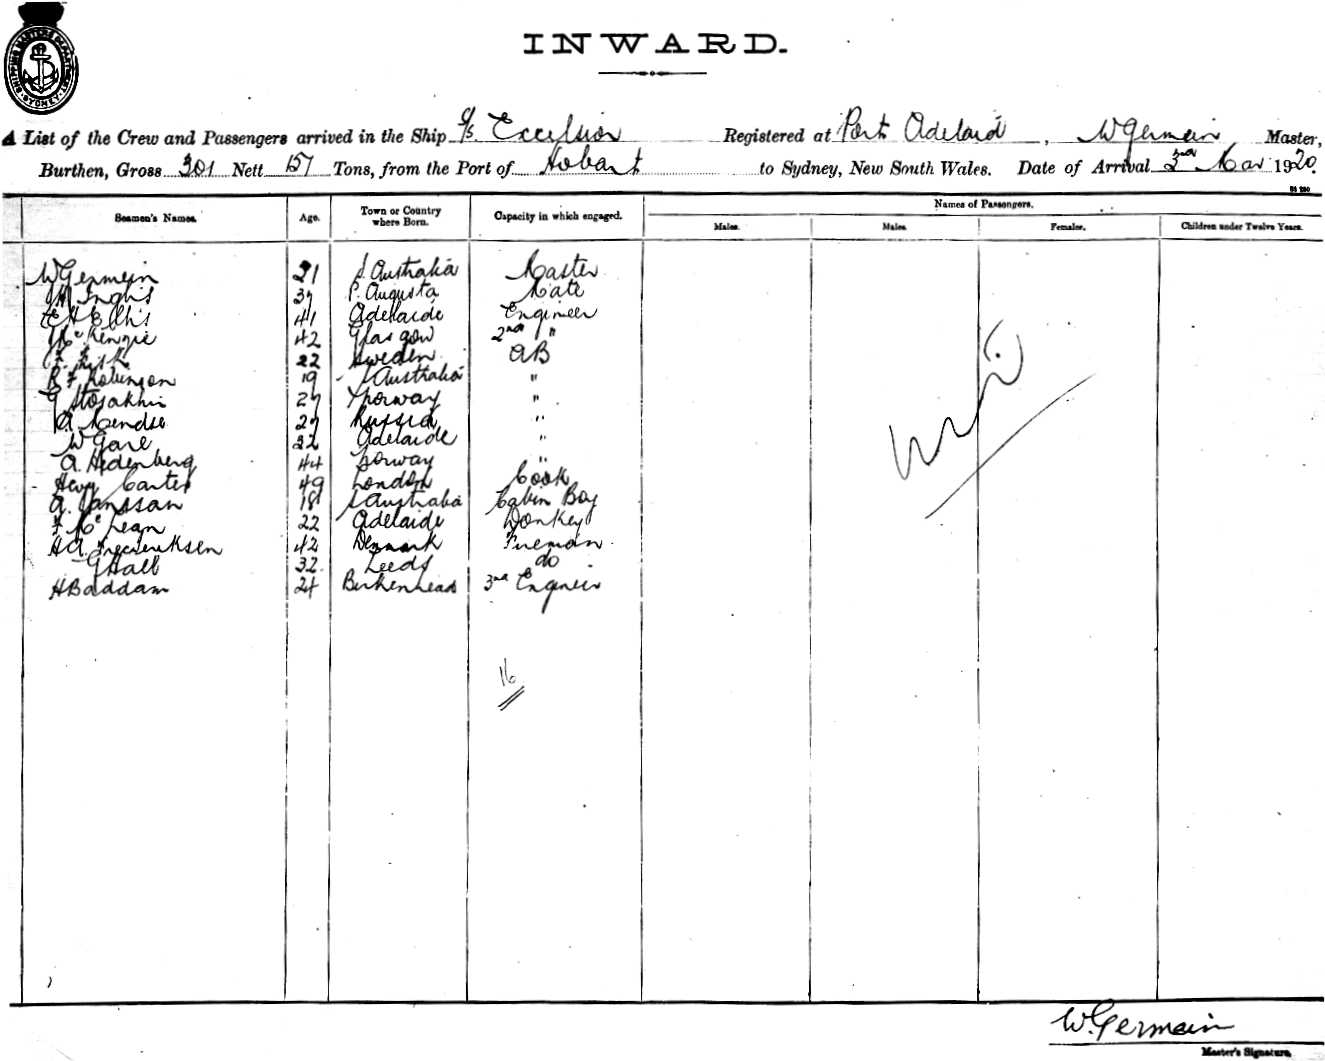 SHIPPING MASTERS DEPARTMENT SYDNEY
INWARD.
A List of the Crew and Passengers arrived in the Ship S/S. Excelsior Registered at Port Adelaid, W Germein Master,
Burthen, Gross 301 Nett 157 Tons, from the Port of Hobart to Sydney, New South Wales. Date of Arrival 3rd Mar 1920.
Seamen's Names. Age. Town or Country where Born. Capacity in which engaged. Names of Passengers.
Males. Males. Females. Children under Twelve Years.
W Germein 21 S. Australia Master
Inglis 37 P. Augusta Mate
E H Ellis 41 Adelaide Engineer
McKenzie 42 Glasgow 2nd "
22 Sweden AB
R F Robinson 19 S Australia "
G 27 Norway "
A. 27 Russia "
W Gare 32 Adelaide "
A. Hedenberg 44 Norway "
Henry Carter 49 London Cook
A. Janssan 18 S Australia Cabin Boy
F McLean 22 Adelaide Donkey
H A. Fredericksen 42 Denmark Fireman
G Hall 32 Leeds do
H Baddam 24 Birkenhead 3rd Engineer
Nil
16
W. Germein
Master's Signature.